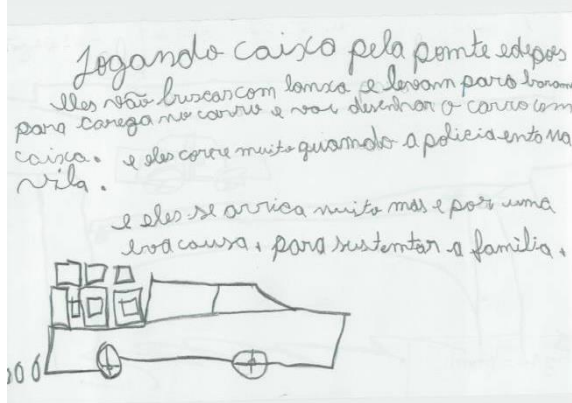 Jogando caixa pela pomte edepois
elles vão buscar com lamxa e levam para baram
para carega no carro e vai desenhar o carro com
caixa. e eles corre muito quamdo a policia emto na
vila.
e eles se arrica muito mas e por uma
boa causa, para sustemtar a familia,